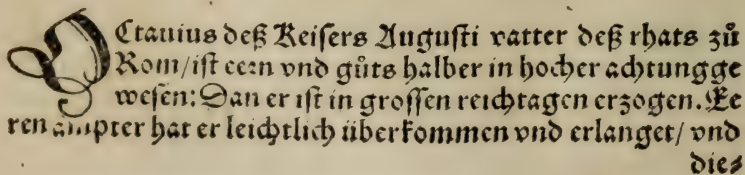 OCtauius deß Keisers Augusti vatter deß rhats zů
Rom/ist eern vnd gůts halber in hocher achtung ge
wesen: Dan er ist in grossen reichtagen erzogen. Ee
ren ampter hat er leichtlich überkommen vnd erlanget/ vnd
die⸗